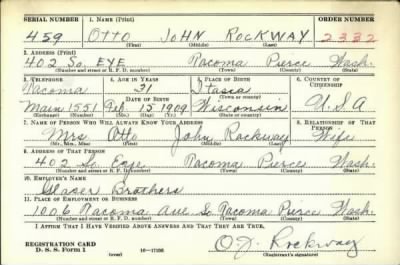 SERIAL NUMBER 1. NAME (Print) ORDER NUMBER
459 OTTO JOHN ROCKWAY 2332
(First) (Middle) (Last)
2. ADDRESS (Print)
402 So. EYE Tacoma Pierce Wash.
(Number and street or R. F. D. number) (Town) (County) (State)
3. TELEPHONE 4. AGE IN YEARS 5. PLACE OF BIRTH 6. COUNTRY OF CITIZENSHIP
Tacoma 31 Itasca
DATE OF BIRTH (Town or county)
Main 1551 Feb. 15 1909 Wisconsin U.S.A
(Exchange) (Number) (Mo.) (Day) (Yr.) (State or country)
7. NAME OF PERSON WHO WILL ALWAYS KNOW YOUR ADDRESS 8. RELATIONSHIP OF THAT PERSON
Mrs Otto John Rockway Wife
(Mr., Mrs., Miss) (First) (Middle) (Last)
9. ADDRESS OF THAT PERSON
402 So. Eye Tacoma Pierce Wash.
(Number and street or R. F. D. number) (Town) (County) (State)
10. EMPLOYER'S NAME
Glaser Brothers
11. PLACE OF EMPLOYMENT OR BUSINESS
1006 Tacoma Ave So. Tacoma Pierce Wash.
(Number and street or R. F. D. number) (Town) (County) (State)
I AFFIRM THAT I HAVE VERIFIED ABOVE ANSWERS AND THAT THEY ARE TRUE.
O.J. Rockway
REGISTRATION CARD
D. S. S. Form 1 (over) (Registrant's signature)